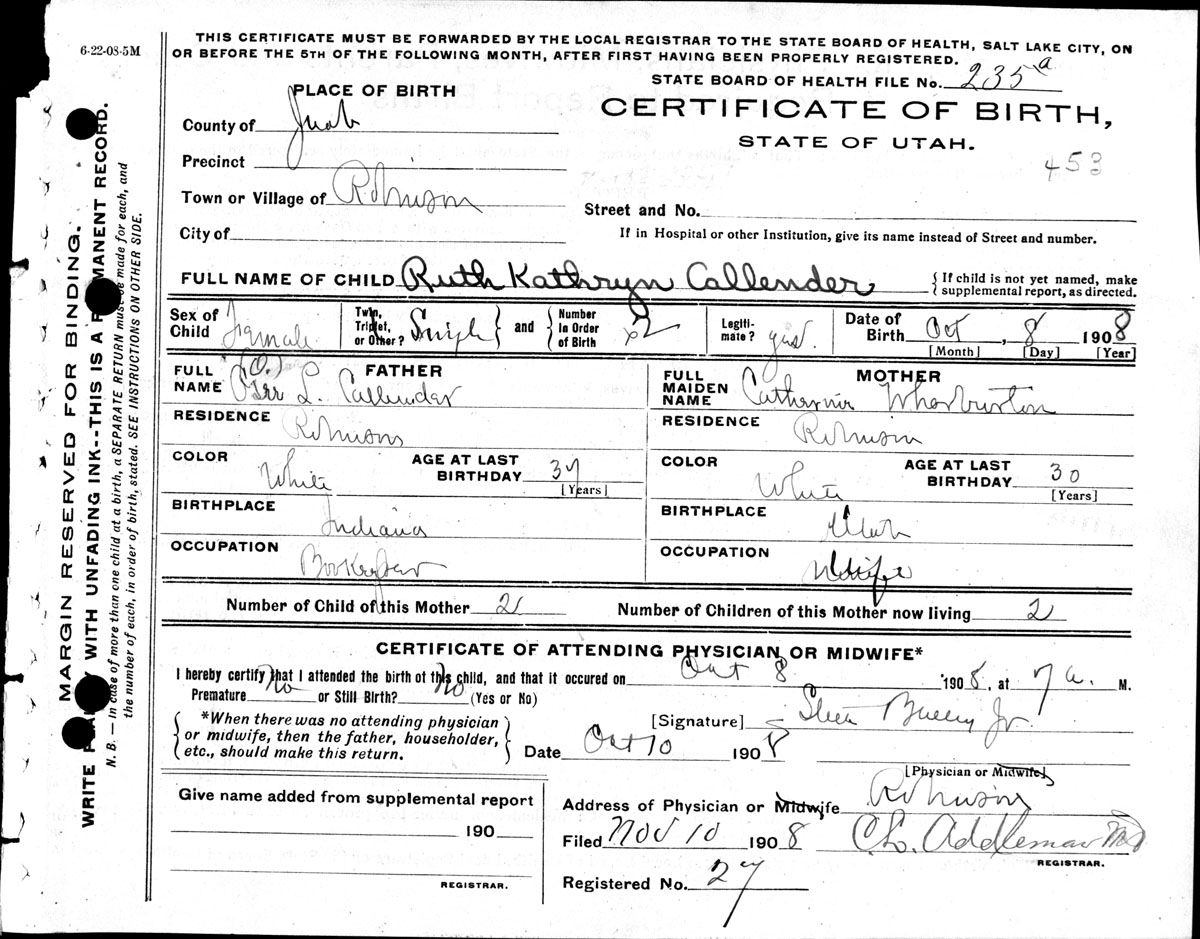 6-22-08-5M
THIS CERTIFICATE MUST BE FORWARDED BY THE LOCAL REGISTRAR TO THE STATE BOARD OF HEALTH, SALT LAKE CITY, ON
OR BEFORE THE 5TH OF THE FOLLOWING MONTH, AFTER FIRST HAVING BEEN PROPERLY REGISTERED.
STATE BOARD OF HEALTH FILE No. 235 a
PLACE OF BIRTH
CERTIFICATE OF BIRTH,
County of Juab
STATE OF UTAH.
453
Precinct
Town or Village of Robinson
Street and No.
City of
If in Hospital or other Institution, give its name instead of Street and number.
FULL NAME OF CHILD Ruth Kathryn Callender { If child is not yet named, make supplemental report, as directed.
Sex of Child Female Twin, Triplet, or Other? Single } and { Number in Order of Birth 2 Legiti-mate? yes. Date of Birth Oct, 8 1908
[Month] [Day] [Year]
FATHER
FULL NAME L. Callender
RESIDENCE Robinson
COLOR White AGE AT LAST BIRTHDAY 37
[Years]
BIRTHPLACE Indiana
OCCUPATION Bookkeeper
MOTHER
FULL MAIDEN NAME Catherine Wharburton
RESIDENCE Robinson
COLOR White AGE AT LAST BIRTHDAY 30
[Years]
BIRTHPLACE Utah
OCCUPATION
Number of Child of this Mother 2 Number of Children of this Mother now living 2
CERTIFICATE OF ATTENDING PHYSICIAN OR MIDWIFE*
I hereby certify that I attended the birth of this child, and that it occured on Oct 8 1908, at 7 a. M.
Premature No or Still Birth? No (Yes or No)
{ *When there was no attending physician
or midwife, then the father, householder,
etc., should make this return. }
[Signature] Steele Bailey Jr
Date Oct 10 1908
[Physician or Midwife]
Give name added from supplemental report
190
REGISTRAR.
Address of Physician or Midwife Robinson
Filed Nov 10 1908 C. L. Addleman MD
REGISTRAR.
Registered No. 27
MARGIN RESERVED FOR BINDING.
WRITE WITH UNFADING INK--THIS IS A PERMANENT RECORD.
N. B. — In case of more than one child at a birth, a SEPARATE RETURN must be made for each, and
the number of each, in order of birth, stated. SEE INSTRUCTIONS ON OTHER SIDE.